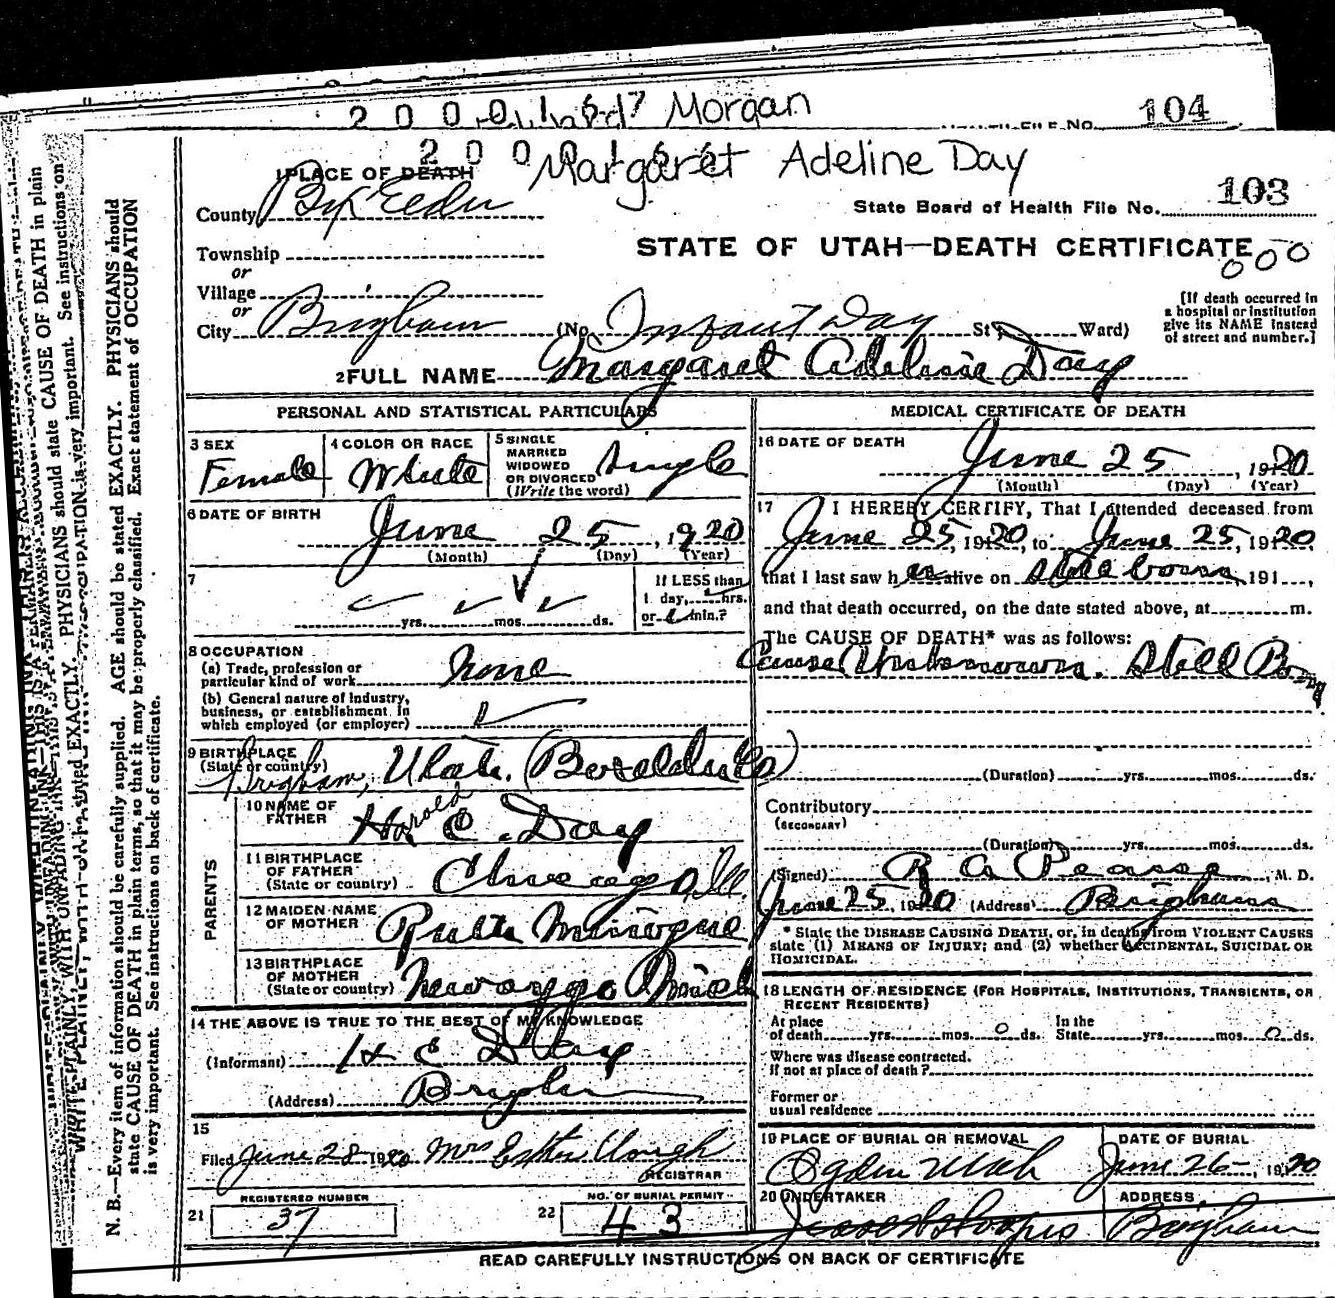 Morgan
104
Margaret Adeline Day
1 PLACE OF DEATH
County Box Elder
State Board of Health File No. 103
STATE OF UTAH—DEATH CERTIFICATE
000
Township
or
Village
or
City Brigham (No. Infant Day St., Ward)
[If death occurred in
a hospital or institution
give its NAME instead
of street and number.]
2 FULL NAME Margaret Adeline Day
PERSONAL AND STATISTICAL PARTICULARS
3 SEX Female
4 COLOR OR RACE White
5 SINGLE
MARRIED
WIDOWED
OR DIVORCED
(Write the word) Single
6 DATE OF BIRTH
June 25, 1920
(Month) (Day) (Year)
7
yrs. mos. ds.
If LESS than
1 day, hrs.
or min.?
8 OCCUPATION
(a) Trade, profession or
particular kind of work None
(b) General nature of Industry,
business, or establishment in
which employed (or employer)
9 BIRTHPLACE
(State or country)
Brigham, Utah.
PARENTS
10 NAME OF
FATHER Harold C. Day
11 BIRTHPLACE
OF FATHER
(State or country) Chicago, Ill
12 MAIDEN NAME
OF MOTHER Ruth Minogue
13 BIRTHPLACE
OF MOTHER
(State or country) Newaygo Mich
14 THE ABOVE IS TRUE TO THE BEST OF MY KNOWLEDGE
(Informant) H C Day
(Address) Brigham
15
Filed June 28 1920 Mrs
REGISTRAR
REGISTERED NUMBER
21 37
NO. OF BURIAL PERMIT
22 43
MEDICAL CERTIFICATE OF DEATH
16 DATE OF DEATH
June 25, 1920
(Month) (Day) (Year)
17 I HEREBY CERTIFY, That I attended deceased from
June 25, 1920, to June 25, 1920,
that I last saw her alive on still born, 191 ,
and that death occurred, on the date stated above, at m.
The CAUSE OF DEATH* was as follows:
Cause Unknown. Still Born
(Duration) yrs. mos. ds.
Contributory
(SECONDARY)
(Duration) yrs. mos. ds.
(Signed) R A Pearse, M. D.
June 25, 1920 (Address) Brigham
* State the DISEASE CAUSING DEATH, or, in deaths from VIOLENT CAUSES
state (1) MEANS OF INJURY; and (2) whether ACCIDENTAL, SUICIDAL OR
HOMICIDAL.
18 LENGTH OF RESIDENCE (FOR HOSPITALS, INSTITUTIONS, TRANSIENTS, OR
RECENT RESIDENTS)
At place
of death yrs. mos. 0 ds.
In the
State yrs. mos. 0 ds.
Where was disease contracted.
if not at place of death?
Former or
usual residence
19 PLACE OF BURIAL OR REMOVAL
Ogden Utah
DATE OF BURIAL
June 26, 1920
20 UNDERTAKER
ADDRESS
Brigham
READ CAREFULLY INSTRUCTIONS ON BACK OF CERTIFICATE
N. B.—Every item of information should be carefully supplied. AGE should be stated EXACTLY. PHYSICIANS should
state CAUSE OF DEATH in plain terms, so that it may be properly classified. Exact statement of OCCUPATION
is very important. See instructions on back of certificate.